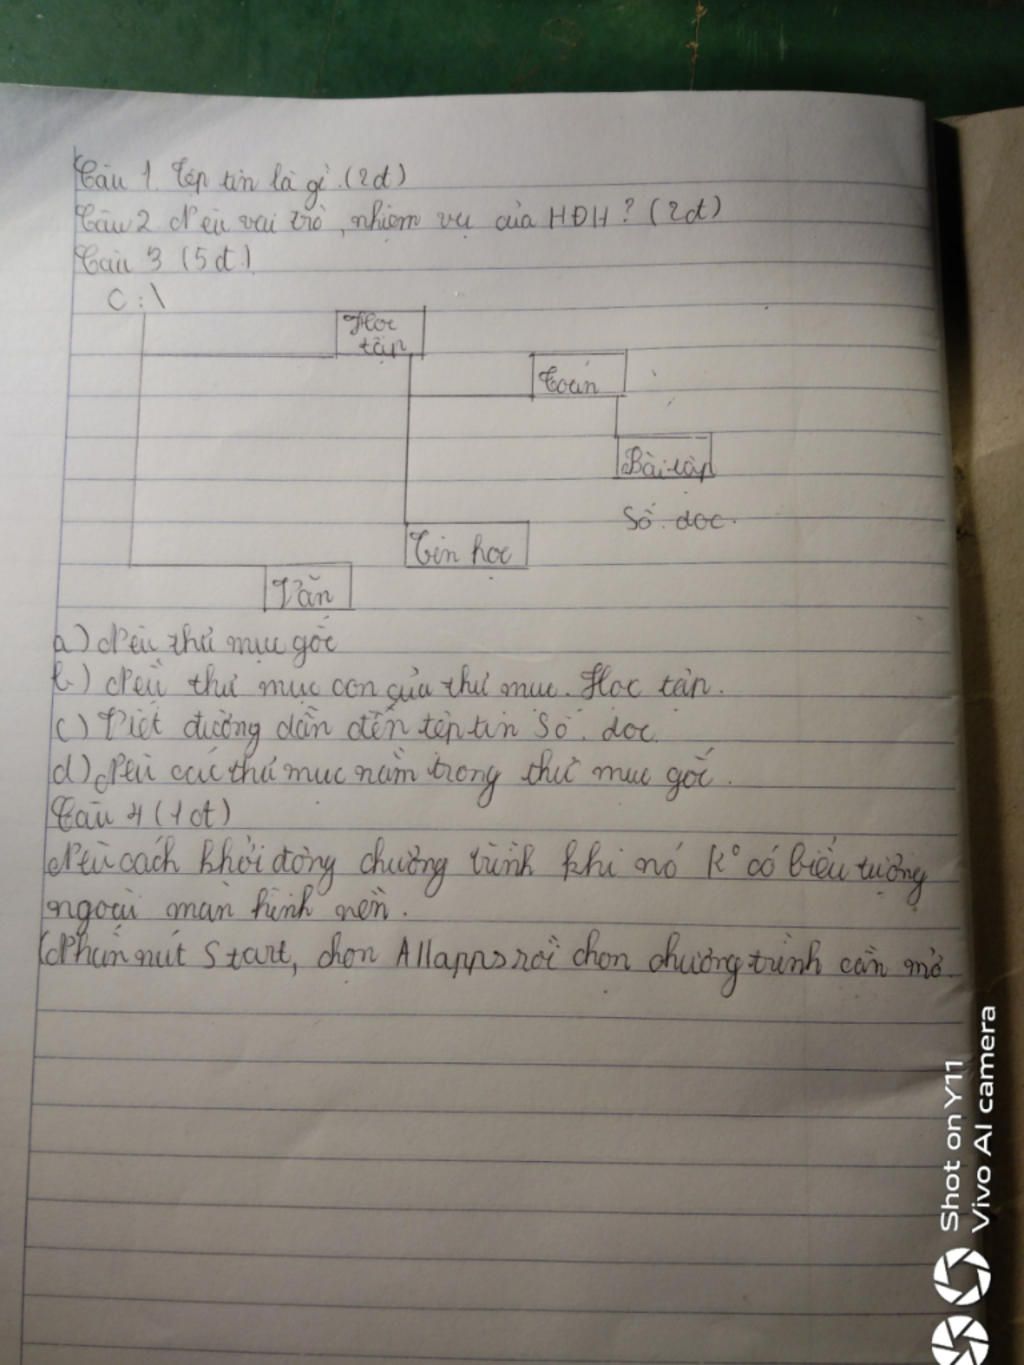 Câu 1. Tệp tin là gì. (2đ)
Câu 2 Nêu vai trò, nhiệm vụ của HĐH? (2đ)
Câu 3 (5đ)
C:\
Học
tập
Toán
Bài tập
Số. doc.
Tin học
Văn
a) Nêu thư mục gốc
b) Nêu thư mục con của thư mục. Học tập.
c) Viết đường dẫn đến tệp tin Số. doc.
d) Nêu các thư mục nằm trong thư mục gốc.
Câu 4 (1đ)
Nêu cách khởi động chương trình khi nó k° có biểu tượng
ngoài màn hình nền.
Nhấn nút Start, chọn All apps rồi chọn chương trình cần mở.
Shot on Y11
Vivo AI camera